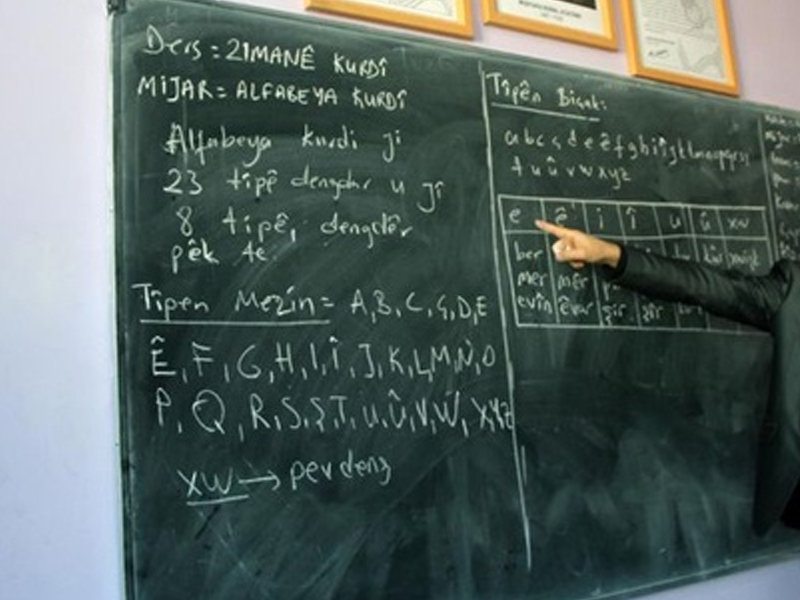 Ders = ZIMANÊ KURDÎ
MİJAR = ALFABEYA KURDÎ
Alfabeya kurdi ji
23 tipê dengdar u jî
8 tipê, dengdêr
pêk te
Tîpen Mezin = A, B, C, Ç, D, E
Ê, F, G, H, I, Î, J, K, L, M, N, O
P, Q, R, S, Ş, T, U, Û, V, W, X, Y, Z
XW → pevdeng
Tîpên Biçuk:
a b c ç d e ê f g h i î j k l m n o p q r s ş
t u û v w x y z
e ê i î u û xw
ber
mer mêr
evîn êvar zir zîr